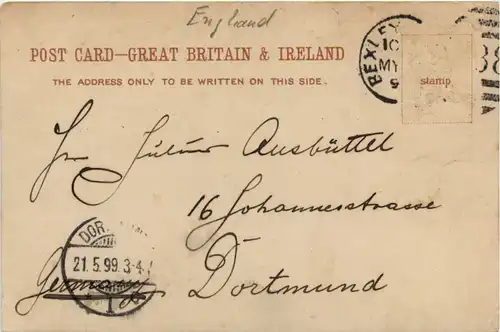 England
POST CARD—GREAT BRITAIN & IRELAND
THE ADDRESS ONLY TO BE WRITTEN ON THIS SIDE.
BEXLEY
MY
9
38
stamp
Hr Julius Ausbüttel
16 Johannesstrasse
Dortmund
Germany
DOR
21.5.99.3-4
1